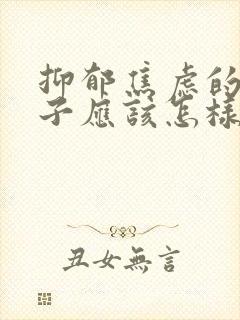 抑郁焦虑的
子应该怎样
丑女無言